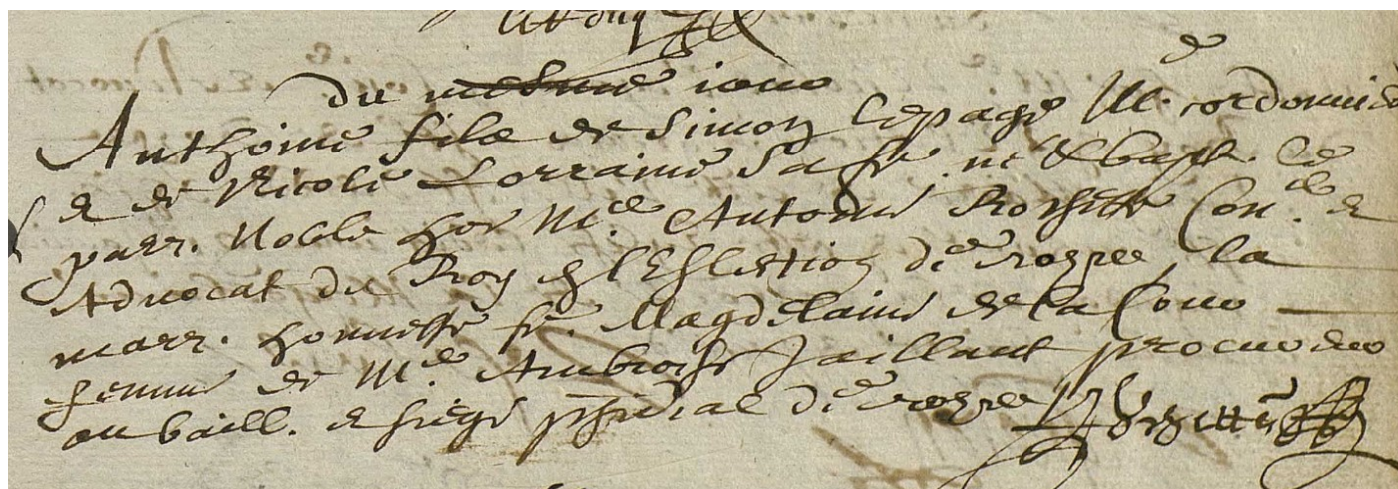 du mesme iour
Anthoine fils de Simon Lepage M.e cordonnier
& de Nicole Lorraine sa fe. ne & bapt. Le
parr. Noble hoe M.e Antoine Con.er &
Advocat du Roy en l'Eslection de Troyes, la
marr. honneste fe. Magdelaine de la Cour
femme de M.e Ambroise Jaillant procureur
au baill. & siege psidial de Troyes